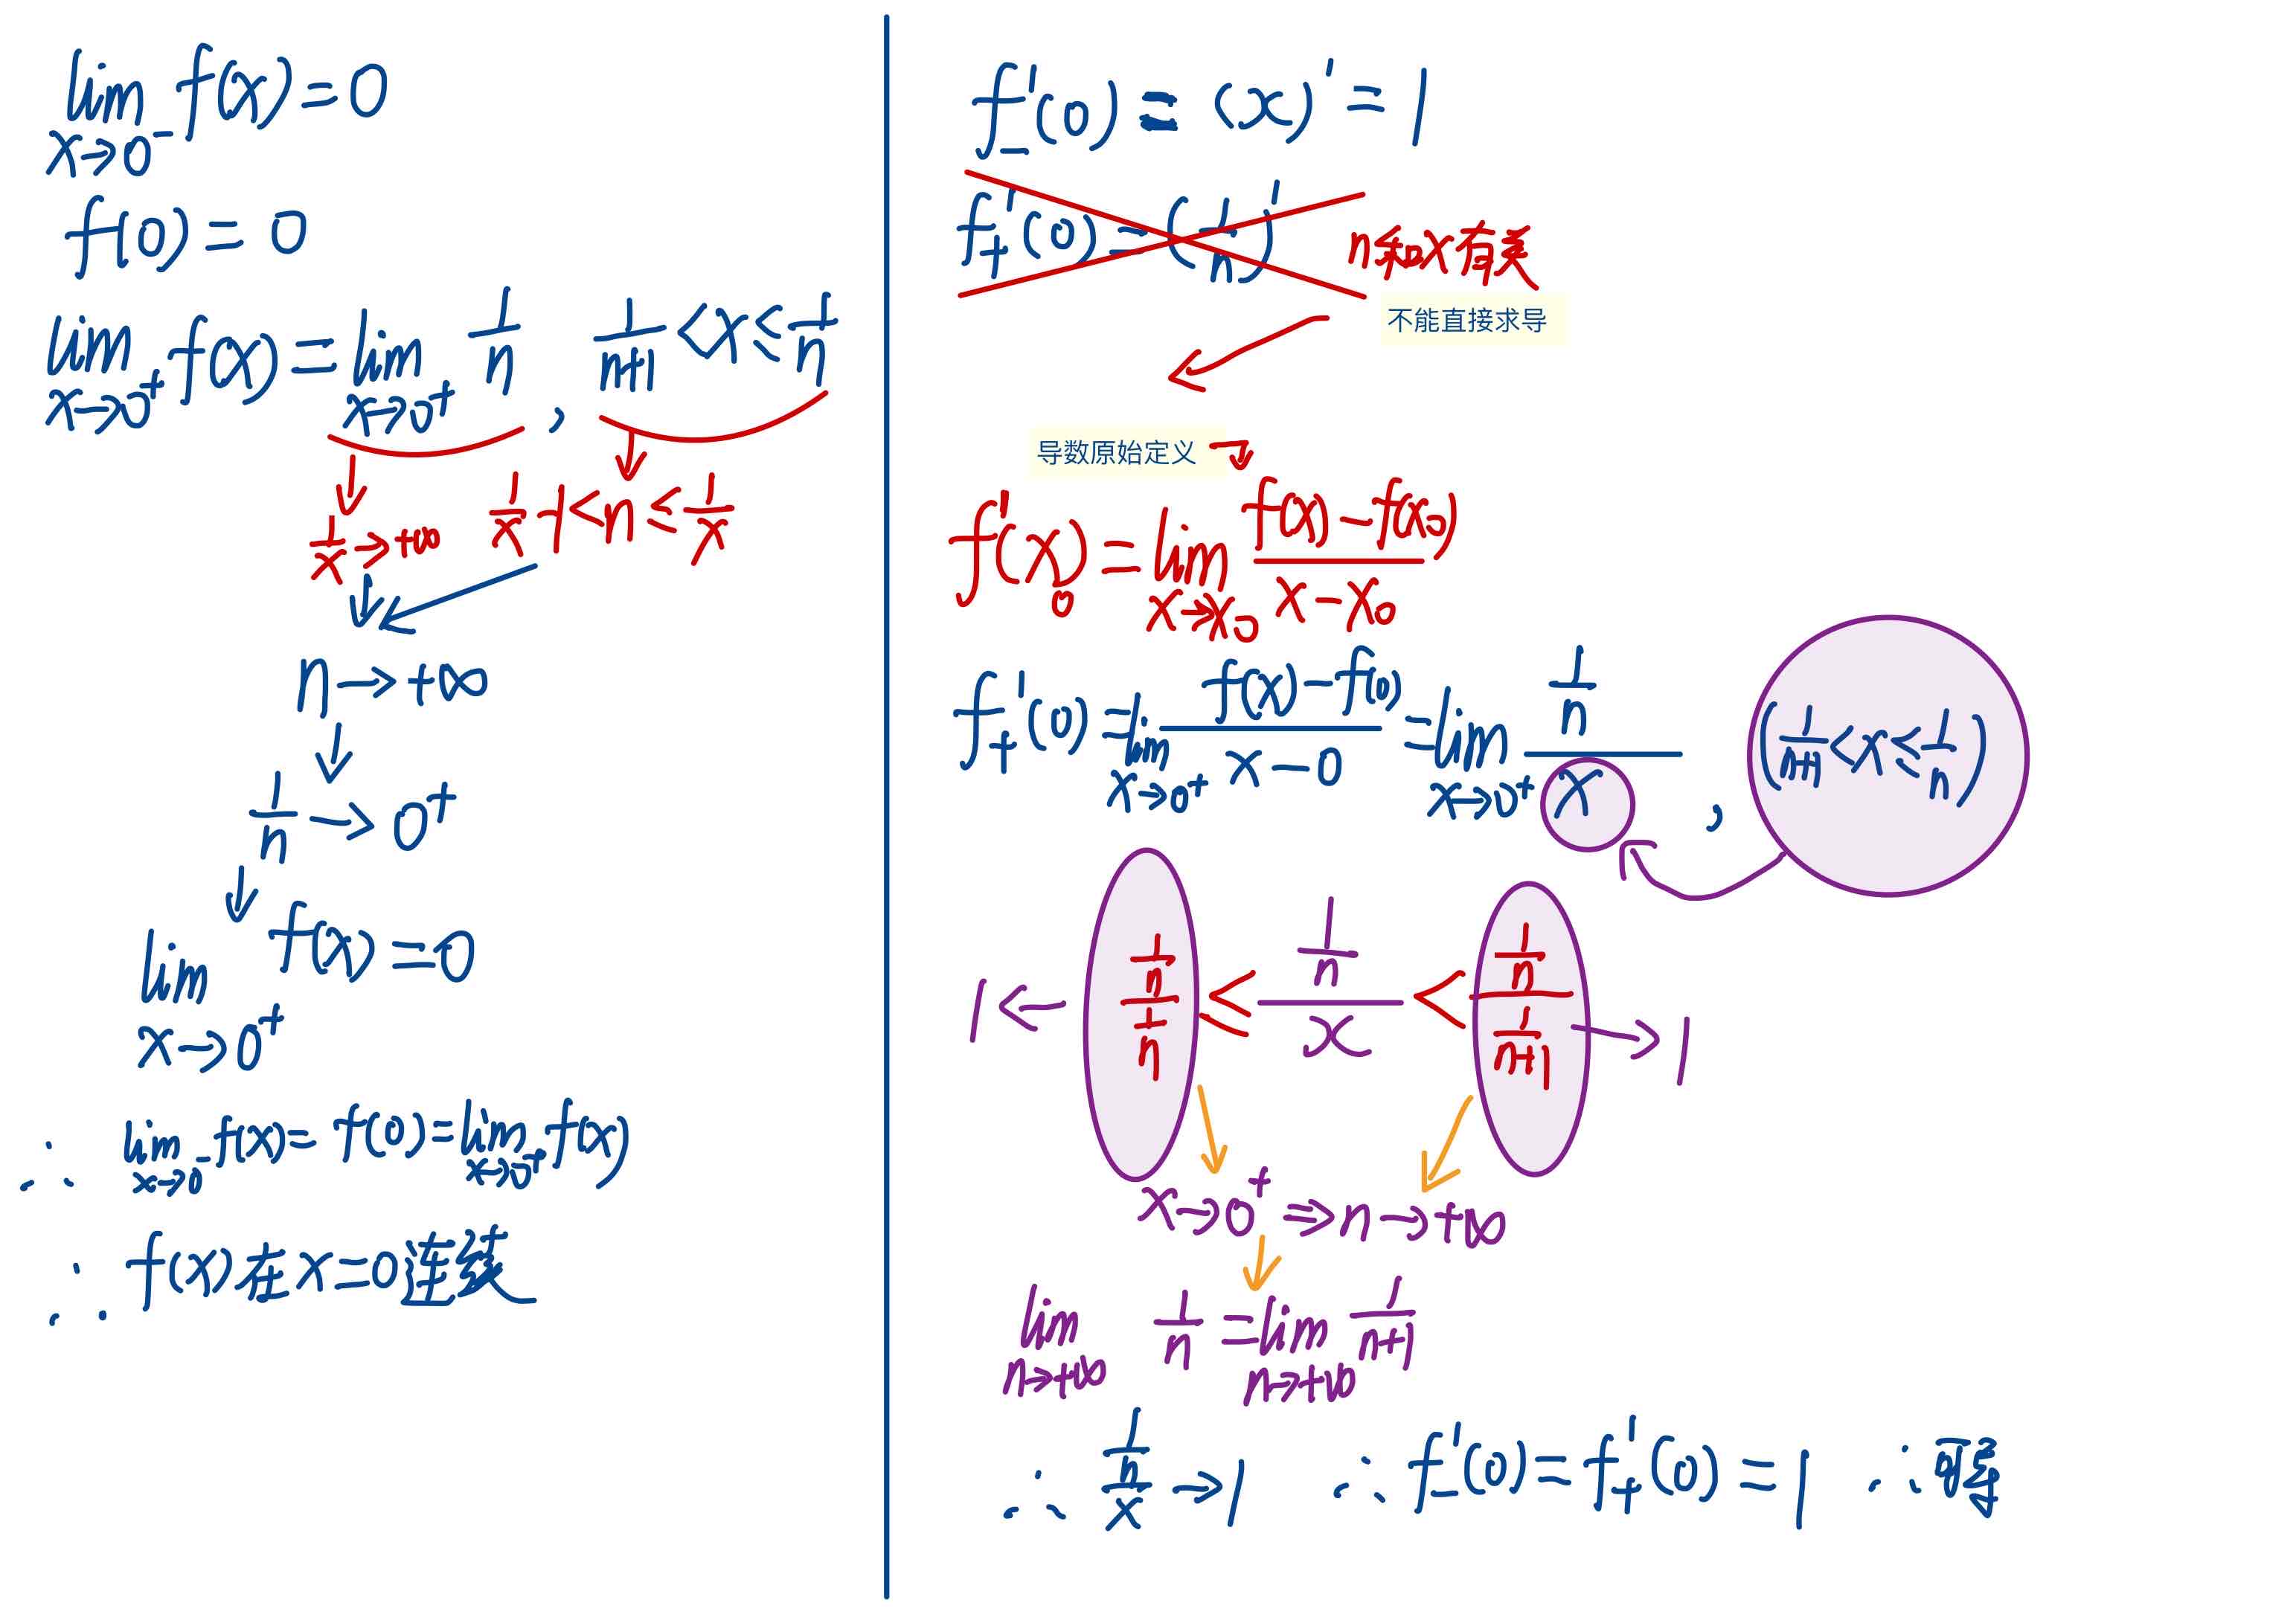 lim f(x) = 0
x→0⁻
f(0) = 0
lim f(x) = lim 1/n , 1/(n+1) < x ≤ 1/n
x→0⁺ x→0⁺
1/x → +∞ 1/x - 1 < n ≤ 1/x
n → +∞
1/n → 0⁺
lim f(x) = 0
x→0⁺
∴ lim f(x) = f(0) = lim f(x)
x→0⁻ x→0⁺
∴ f(x) 在 x=0 连续
f₋'(0) = (x)' = 1
f₊'(0) = (1/n)'
n和x有关
不能直接求导
导数原始定义
f'(x₀) = lim (f(x) - f(x₀))/(x - x₀)
x→x₀
f₊'(0) = lim (f(x) - f(0))/(x - 0) = lim (1/n)/x , (1/(n+1) < x ≤ 1/n)
x→0⁺ x→0⁺
1 ← (1/n)/(1/n) ≤ (1/n)/x < (1/n)/(1/(n+1)) → 1
x→0⁺ ⇒ n→+∞
lim 1/n = lim 1/(n+1)
n→+∞ n→+∞
∴ (1/n)/x → 1 ∴ f₋'(0) = f₊'(0) = 1 ∴ 可导